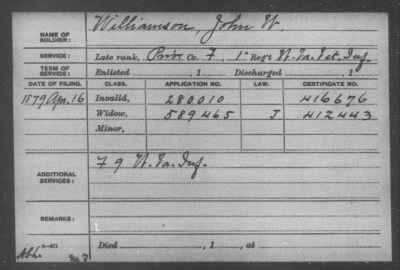 NAME OF SOLDIER: Williamson, John W.
SERVICE: Late rank, Priv Co. F, 1" Reg't W. Va. Vet. Inf.
TERM OF SERVICE: Enlisted , 1 Discharged , 1
DATE OF FILING. CLASS. APPLICATION NO. LAW. CERTIFICATE NO.
1879 Apr. 16 Invalid, 280010 416676
Widow, 589465 J 412443
Minor,
ADDITIONAL SERVICES: F 9 W. Va. Inf.
REMARKS:
Died , 1 , at